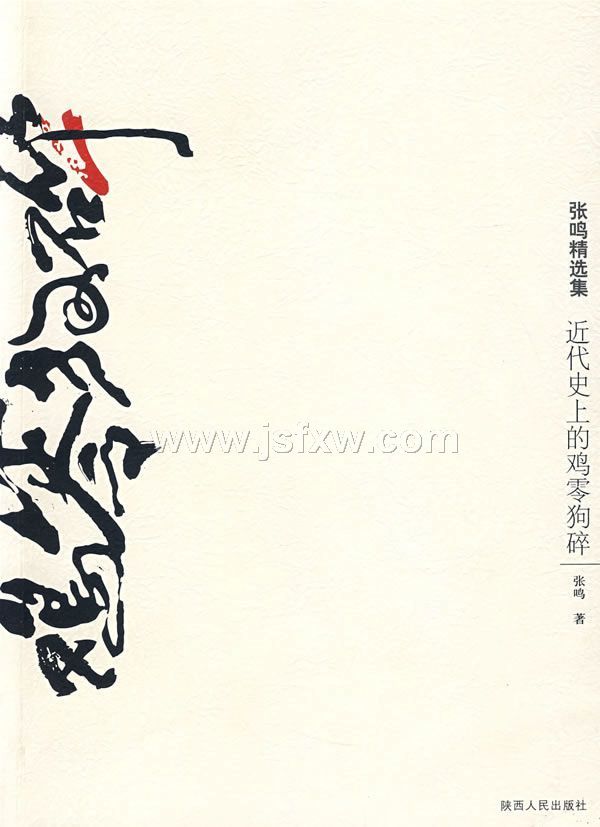 张鸣精选集
近代史上的鸡零狗碎
张鸣 著
www.jsfxw.com
陕西人民出版社